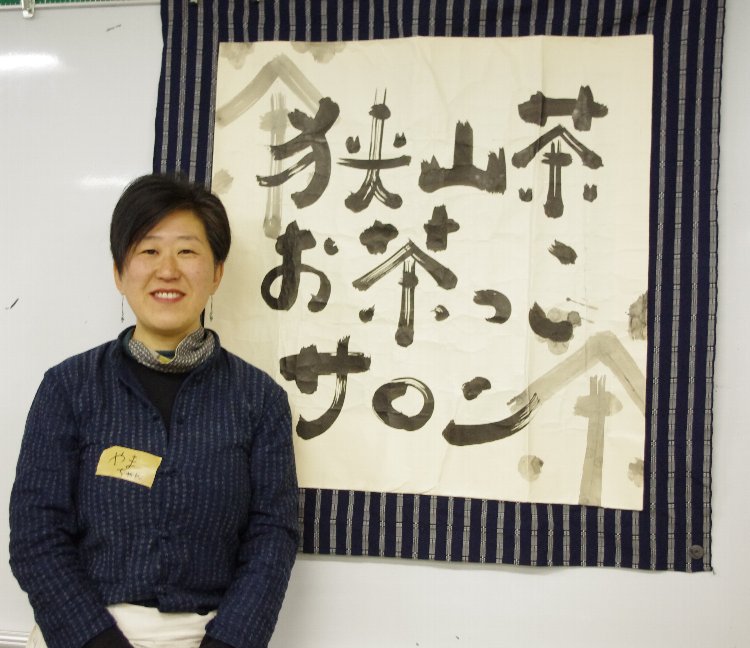 狭山茶
お茶っこ
サロン
やま
ちゃん